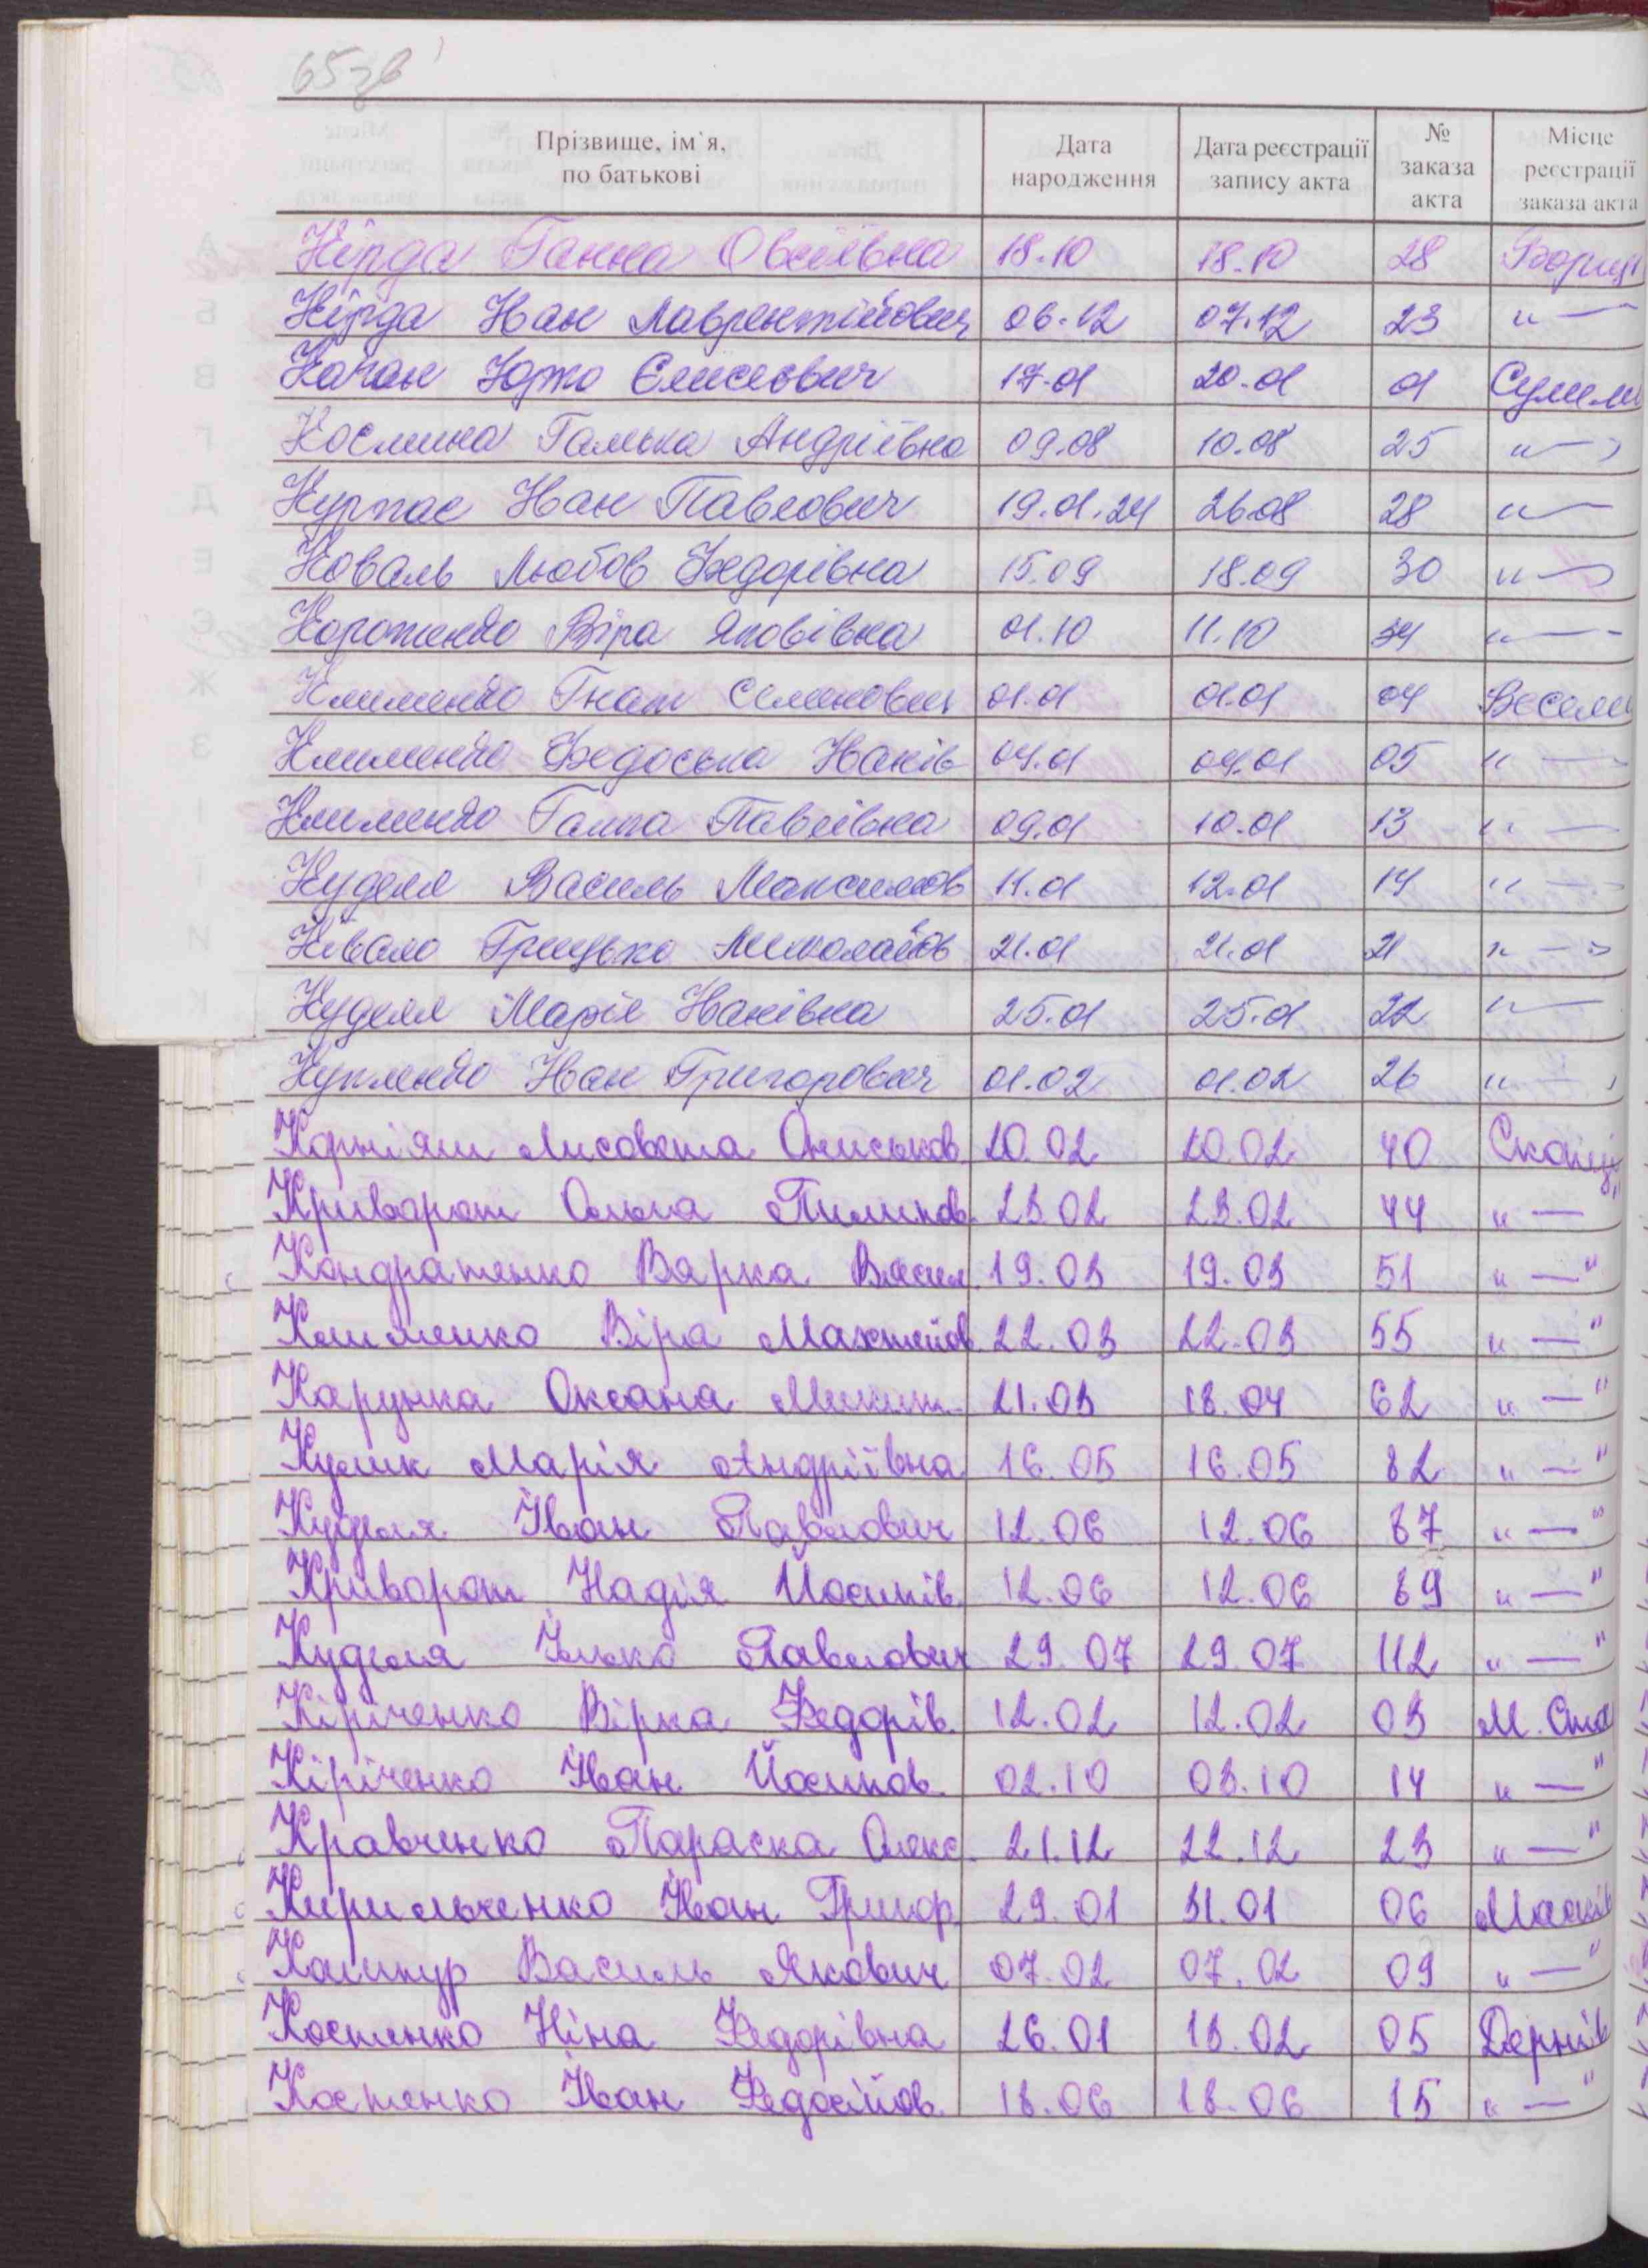 65зв
Прізвище, ім`я, по батькові Дата народження Дата реєстрації запису акта № заказа акта Місце реєстрації заказа акта
Кірда Ганна Овсіївна 18.10 18.10 28
Кірда Іван Лаврентійович 06.12 07.12 23 "—
Качан Юрко Єлисеович 17.01 20.01 01
Космина Галька Андріївна 09.08 10.08 25 "—"
Курпас Іван Павлович 19.01.24 26.08 28 "—
Коваль Любов Федорівна 15.09 18.09 30 "—"
Коротенко Віра Яковівна 01.10 11.10 34 "—
Клименко Гнат Семенович 01.01 01.01 04 Весели
Клименко Федоська Іванів 04.01 04.01 05 "—
Клименко Ганна Павлівна 09.01 10.01 13 "—
Куделя Василь Максимов 11.01 12.01 14 "—
Ківало Грицько Миколайов 21.01 21.01 21 "—"
Куделя Марія Іванівна 25.01 25.01 22 "—
Іван Григорович 01.02 01.02 26 "—"
Корніяш Лисовета Ониськов. 20.02 20.02 40 Скопці
Криворот Ольга Пилипов. 23.02 23.02 44 "—"
Кондратенко Варка Васил. 19.03 19.03 51 "—"
Клименко Віра Махтейов. 22.03 22.03 55 "—"
Карунка Оксана Микит. 21.03 18.04 62 "—"
Кулик Марія Андріївна 16.05 16.05 82 "—"
Куделя Іван Павлович 12.06 12.06 87 "—"
Криворот Надія Йосипів. 12.06 12.06 89 "—"
Куделя Ілько Павлович 29.07 29.07 112 "—"
Кіріченко Вірка Федорів. 12.02 12.02 03 М. Ста
Кіріченко Іван Йосипов. 02.10 03.10 14 "—"
Кравченко Параска Олекс. 21.12 22.12 23 "—"
Кирильченко Іван Григор. 29.01 31.01 06
Кашпур Василь Якович 07.02 07.02 09 "—"
Костенко Ніна Федорівна 26.01 13.02 05 Дернів
Костенко Іван Федосійов. 18.06 18.06 15 "—"